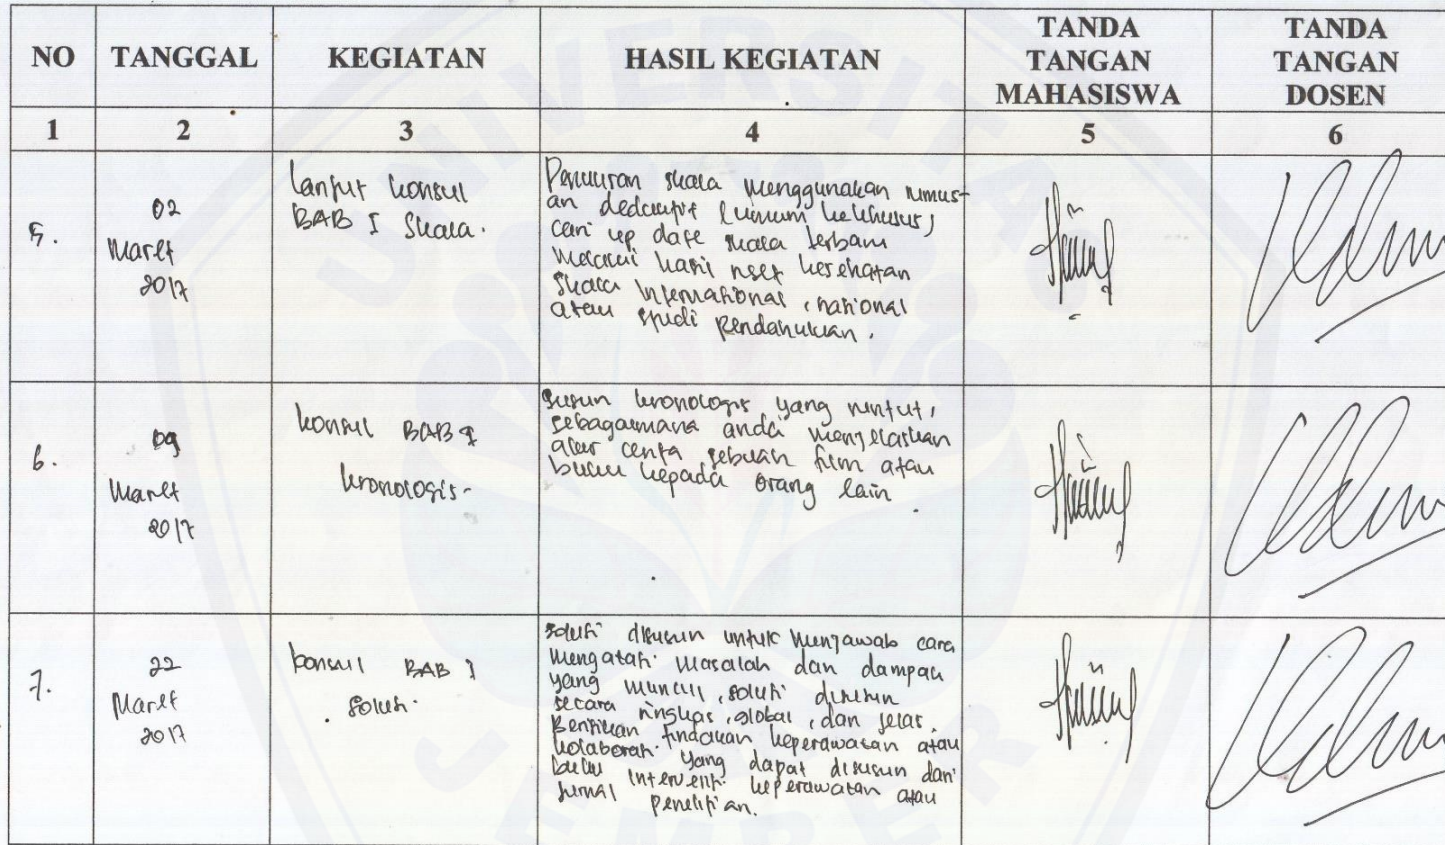 NO TANGGAL KEGIATAN HASIL KEGIATAN TANDA TANGAN MAHASISWA TANDA TANGAN DOSEN
1 2 3 4 5 6
5.
02
Maret
2017
Lanjut konsul
BAB I Skala.
skala menggunakan rumus-
an deduktif (umum ke khusus)
cari up date skala terbaru
melalui hasil riset kesehatan
skala International, national
atau studi pendahuluan.
6.
09
Maret
2017
konsul BAB I
kronologis.
Susun kronologis yang runtut,
sebagaimana anda menjelaskan
alur cerita sebuah film atau
buku kepada orang lain.
7.
22
Maret
2017
konsul BAB I
. Solusi.
Solusi disusun untuk menjawab cara
mengatasi masalah dan dampak
yang muncul, solusi disusun
secara ringkas, global, dan jelas.
Berisikan tindakan keperawatan atau
kolaborasi yang dapat disusun dari
buku intervensi keperawatan atau
jurnal penelitian.
UNIVERSITAS
JEMBER